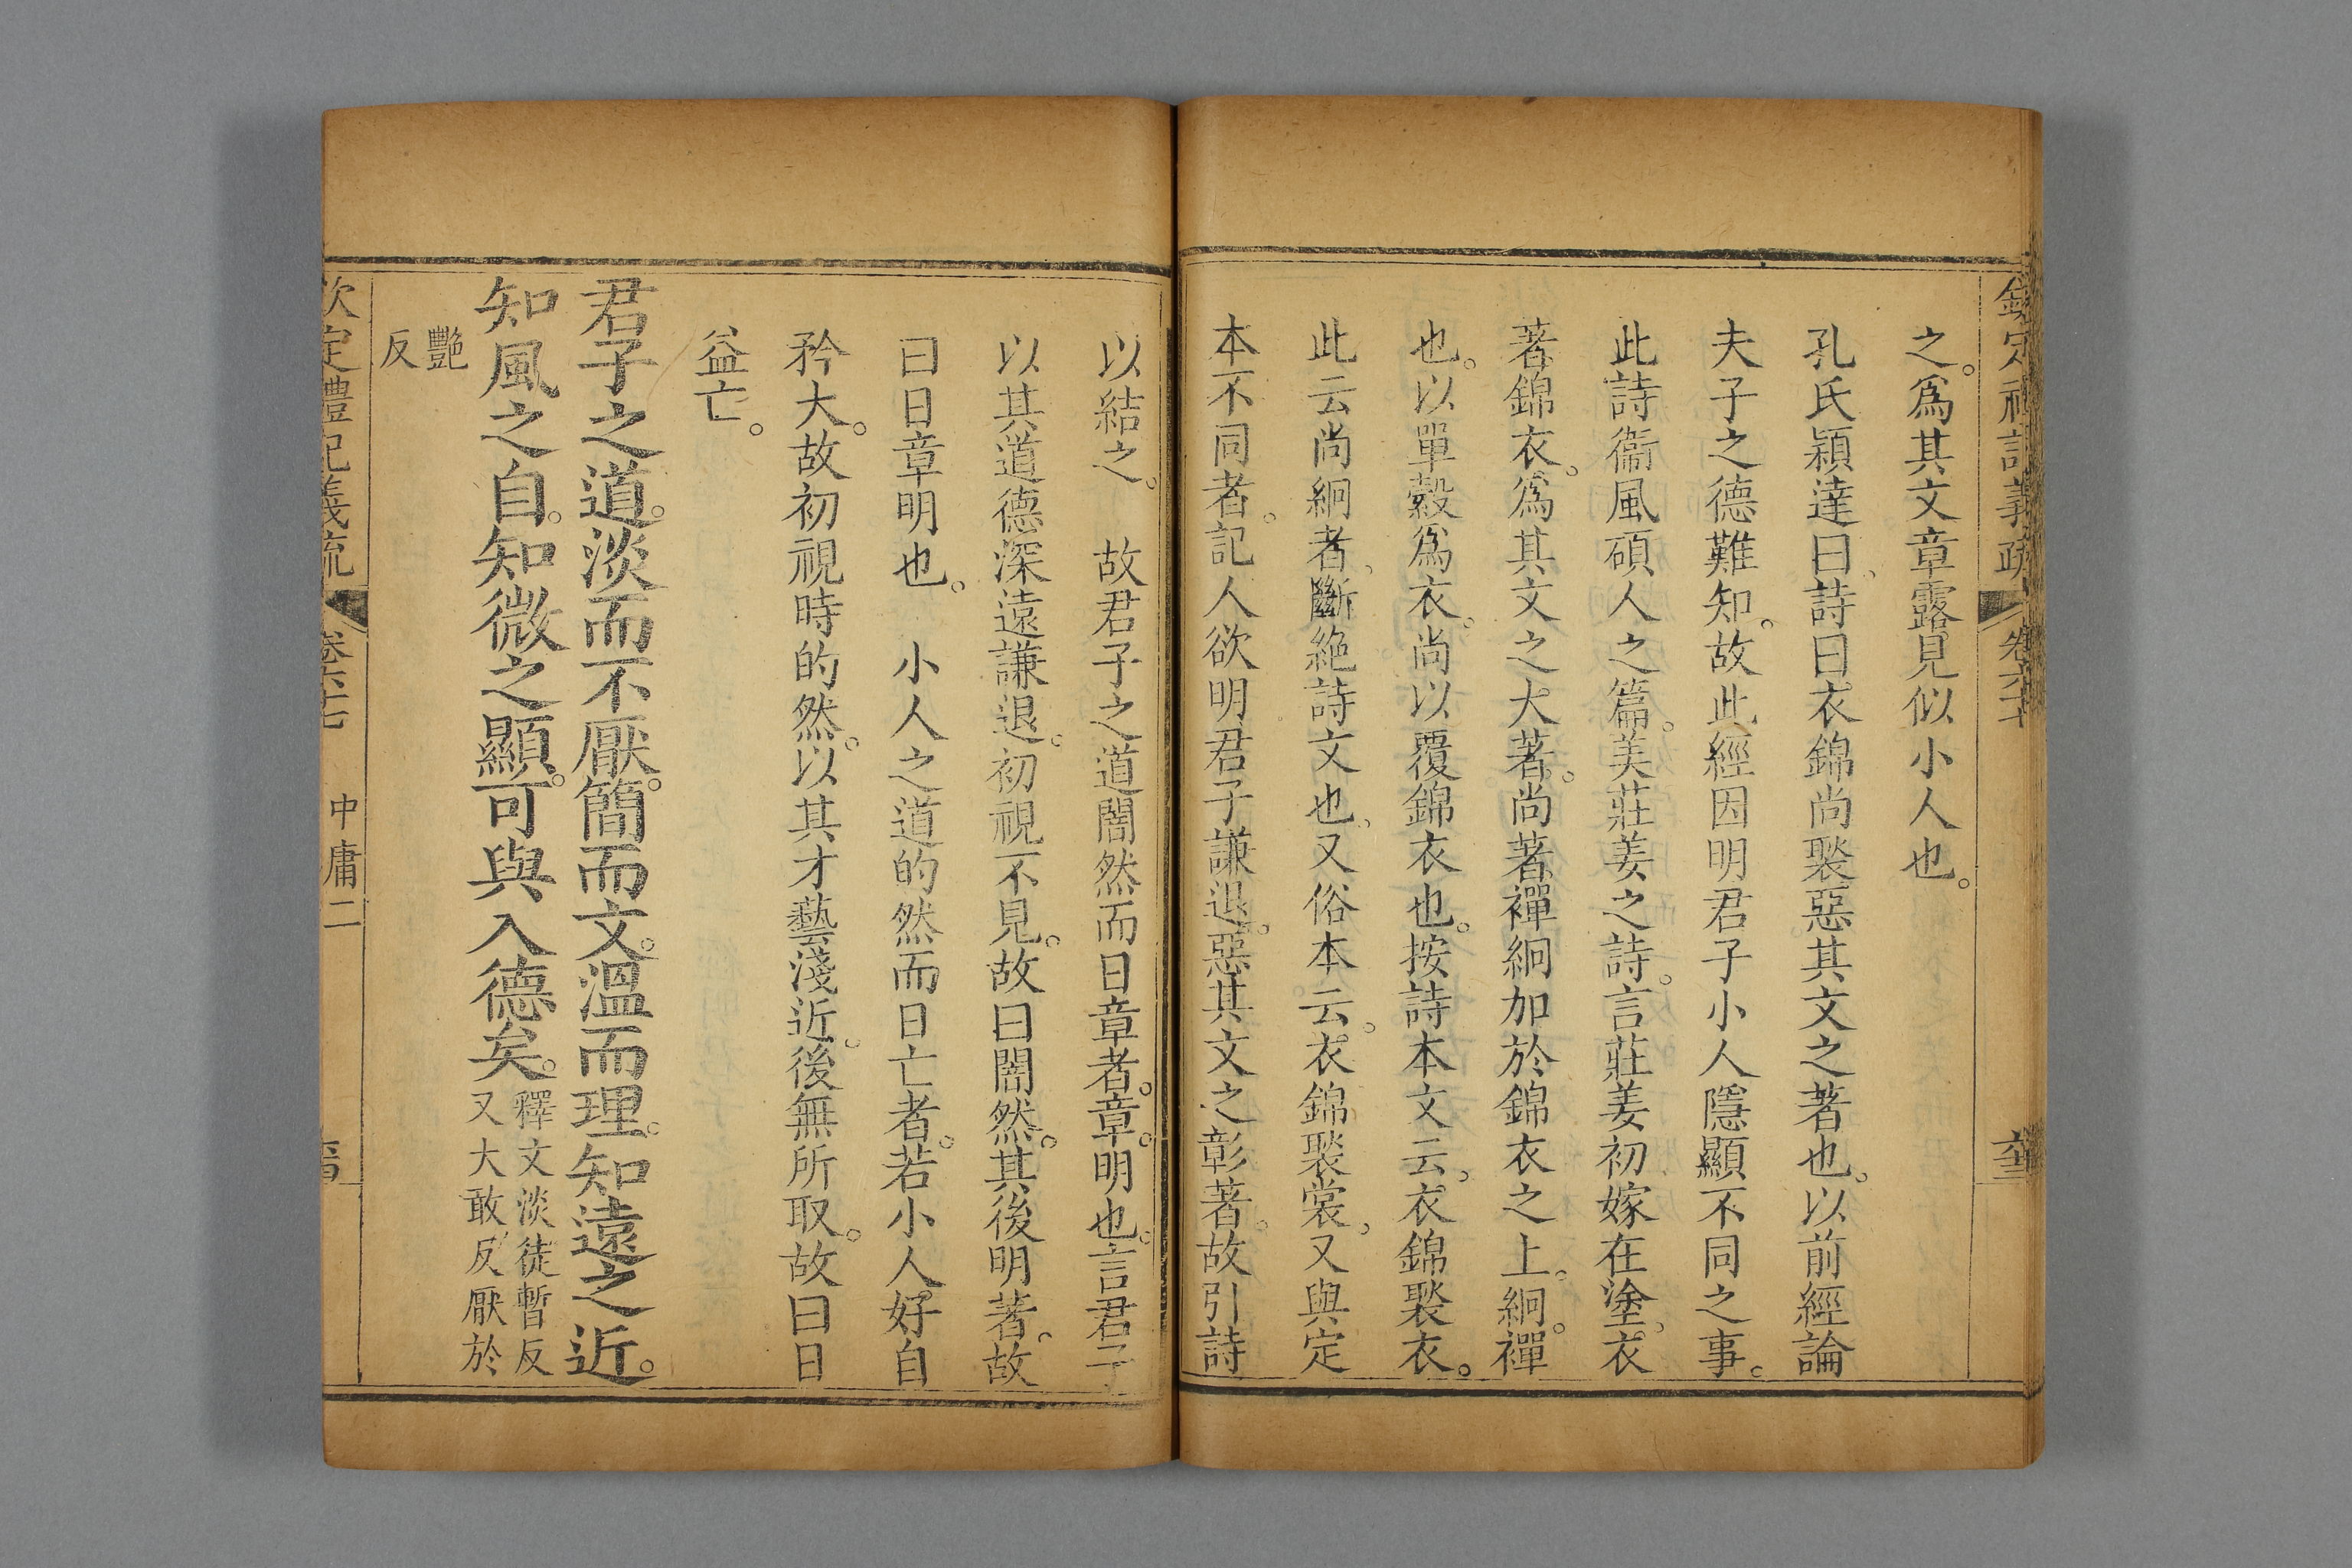 之。爲其文章露見似小人也。
孔氏穎達曰、詩曰衣錦尚褧惡其文之著也。以前經論
夫子之德難知。故此經因明君子小人隱顯不同之事。
此詩衞風碩人之篇。美莊姜之詩。言莊姜初嫁在塗、衣
著錦衣。爲其文之大著。尚著襌絅加於錦衣之上。絅。襌
也。以單縠爲衣。尚以覆錦衣也。按詩本文云、衣錦褧衣。
此云尚絅者、斷絶詩文也、又俗本云。衣錦褧裳、又與定
本不同者。記人欲明君子謙退。惡其文之彰著。故引詩
以結之。　故君子之道闇然而日章者。章。明也。言君子
以其道德深遠謙退。初視不見。故曰闇然。其後明著。故
曰日章明也。　小人之道的然而日亡者。若小人好自
矜大。故初視時的然。以其才藝淺近。後無所取。故曰日
益亡。
君子之道。淡而不厭。簡而文。溫而理。知遠之近。
知風之自。知微之顯。可與入德矣。釋文淡徒暫反
又大敢反厭於
豔
反
欽定禮記義疏
卷六十七　中庸二